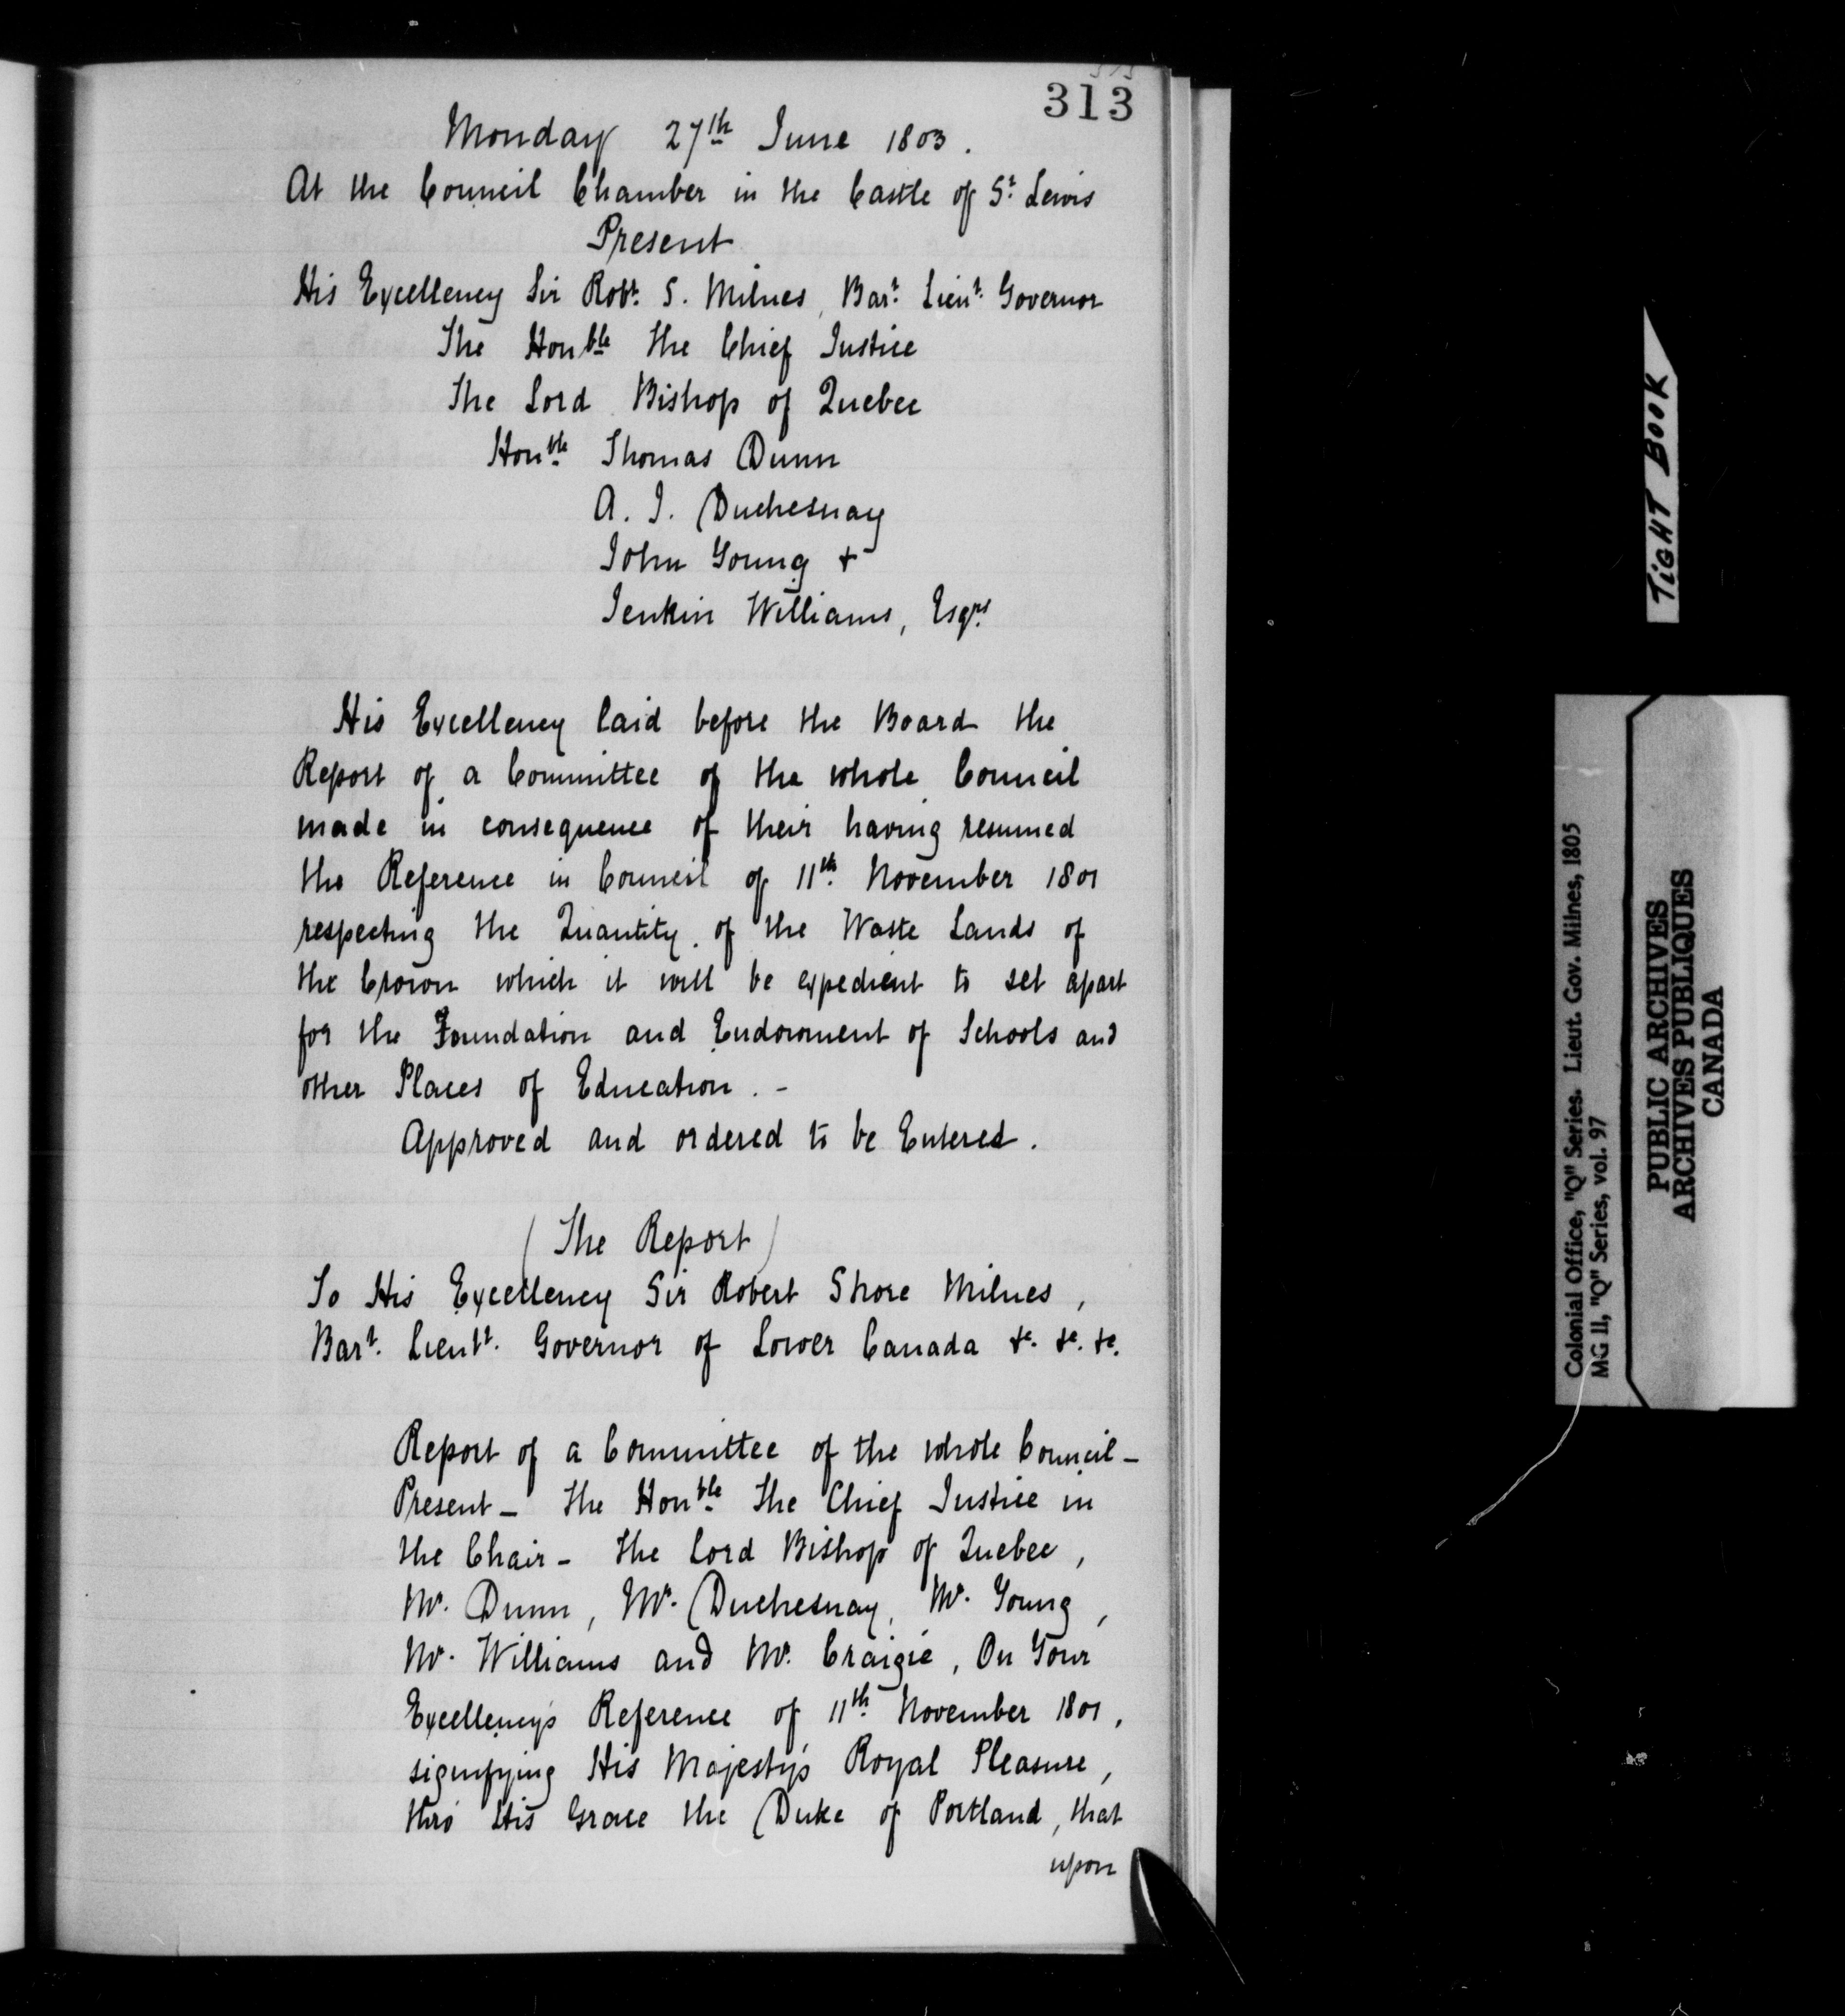 313
Monday 27th June 1803.
At the Council Chamber in the Castle of St. Lewis
Present
His Excellency Sir Robt. S. Milnes, Bart. Lieut. Governor
The Honble the Chief Justice
The Lord Bishop of Quebec
Honble Thomas Dunn
A. J. Duchesnay
John Young +
Jenkin Williams, Esqrs
His Excellency laid before the Board the
Report of a Committee of the whole Council
made in consequence of their having resumed
the Reference in Council of 11th November 1801
respecting the Quantity of the Waste Lands of
the Crown which it will be expedient to set apart
for the Foundation and Endowment of Schools and
other Places of Education. -
Approved and ordered to be Entered.
(The Report)
To His Excellency Sir Robert Shore Milnes,
Bart. Lieutt. Governor of Lower Canada &c. &c. &c.
Report of a Committee of the whole Council -
Present - The Honble The Chief Justice in
the Chair - The Lord Bishop of Quebec,
Mr. Dunn, Mr. Duchesnay, Mr. Young,
Mr. Williams and Mr. Craigie, On Your
Excellency's Reference of 11th November 1801,
signifying His Majesty's Royal Pleasure,
thro' His Grace the Duke of Portland, that
upon
TIGHT BOOK
Colonial Office, "Q" Series. Lieut. Gov. Milnes, 1805
MG 11, "Q" Series, vol. 97
PUBLIC ARCHIVES
ARCHIVES PUBLIQUES
CANADA